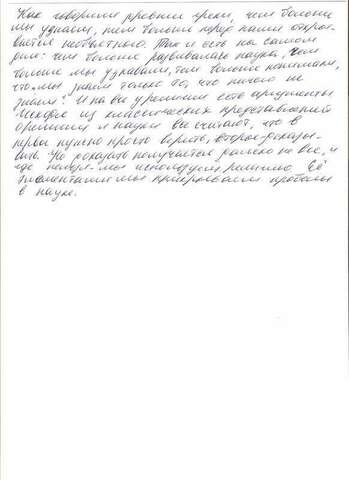 Как говорили древние греки, чем больше
мы узнаем, тем больше перед нами откры-
вается необъятного. Так и есть на самом
деле: чем больше развивалась наука, чем
больше мы узнавали, тем больше понимали,
что мы знаем только то, что ничего не
знаем. И на все у религии есть аргументы
Исходя из классических представлений
о религии и науки все считают, что в
первое нужно просто верить, второе-доказы-
вать. Но доказать получается далеко не все, и
где нельзя-мы используем религию. Её
мы прикрываем пробелы
в науке.